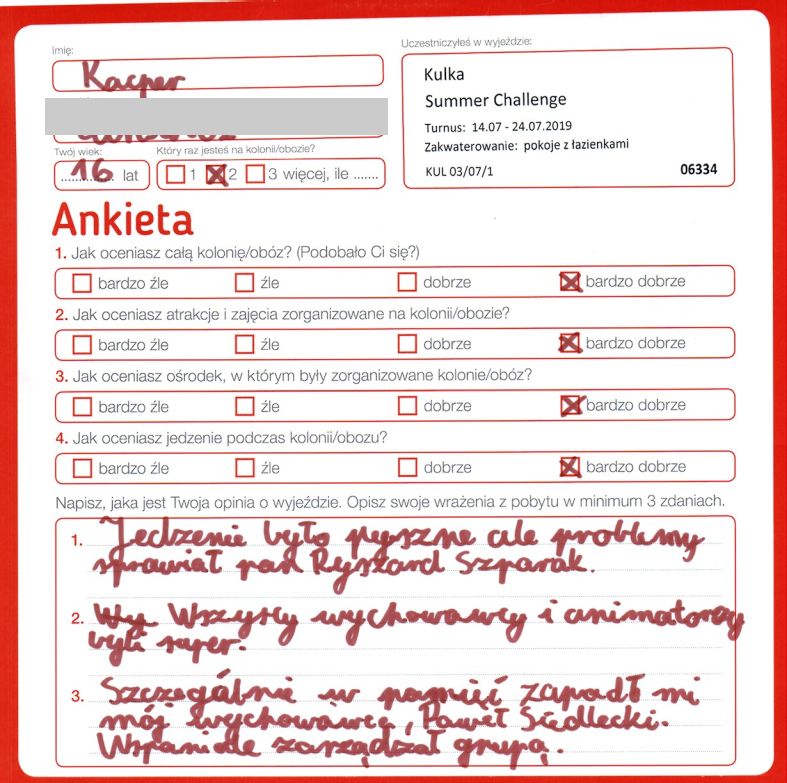 Imię:
Uczestniczyłeś w wyjeździe:
Kacper
Kulka
Summer Challenge
Turnus: 14.07 - 24.07.2019
Zakwaterowanie: pokoje z łazienkami
KUL 03/07/1 06334
Twój wiek: Który raz jesteś na kolonii/obozie?
16 lat 1 2 3 więcej, ile .......
Ankieta
1. Jak oceniasz całą kolonię/obóz? (Podobało Ci się?)
bardzo źle źle dobrze bardzo dobrze
2. Jak oceniasz atrakcje i zajęcia zorganizowane na kolonii/obozie?
bardzo źle źle dobrze bardzo dobrze
3. Jak oceniasz ośrodek, w którym były zorganizowane kolonie/obóz?
bardzo źle źle dobrze bardzo dobrze
4. Jak oceniasz jedzenie podczas kolonii/obozu?
bardzo źle źle dobrze bardzo dobrze
Napisz, jaka jest Twoja opinia o wyjeździe. Opisz swoje wrażenia z pobytu w minimum 3 zdaniach.
1. Jedzenie było pyszne ale problemy
sprawiał pan Ryszard Szparak.
2. Wszyscy wychowawcy i animatorzy
byli super.
3. Szczególnie w pamięć zapadł mi
mój wychowawca, Paweł Siedlecki.
Wspaniale zarządzał grupą.